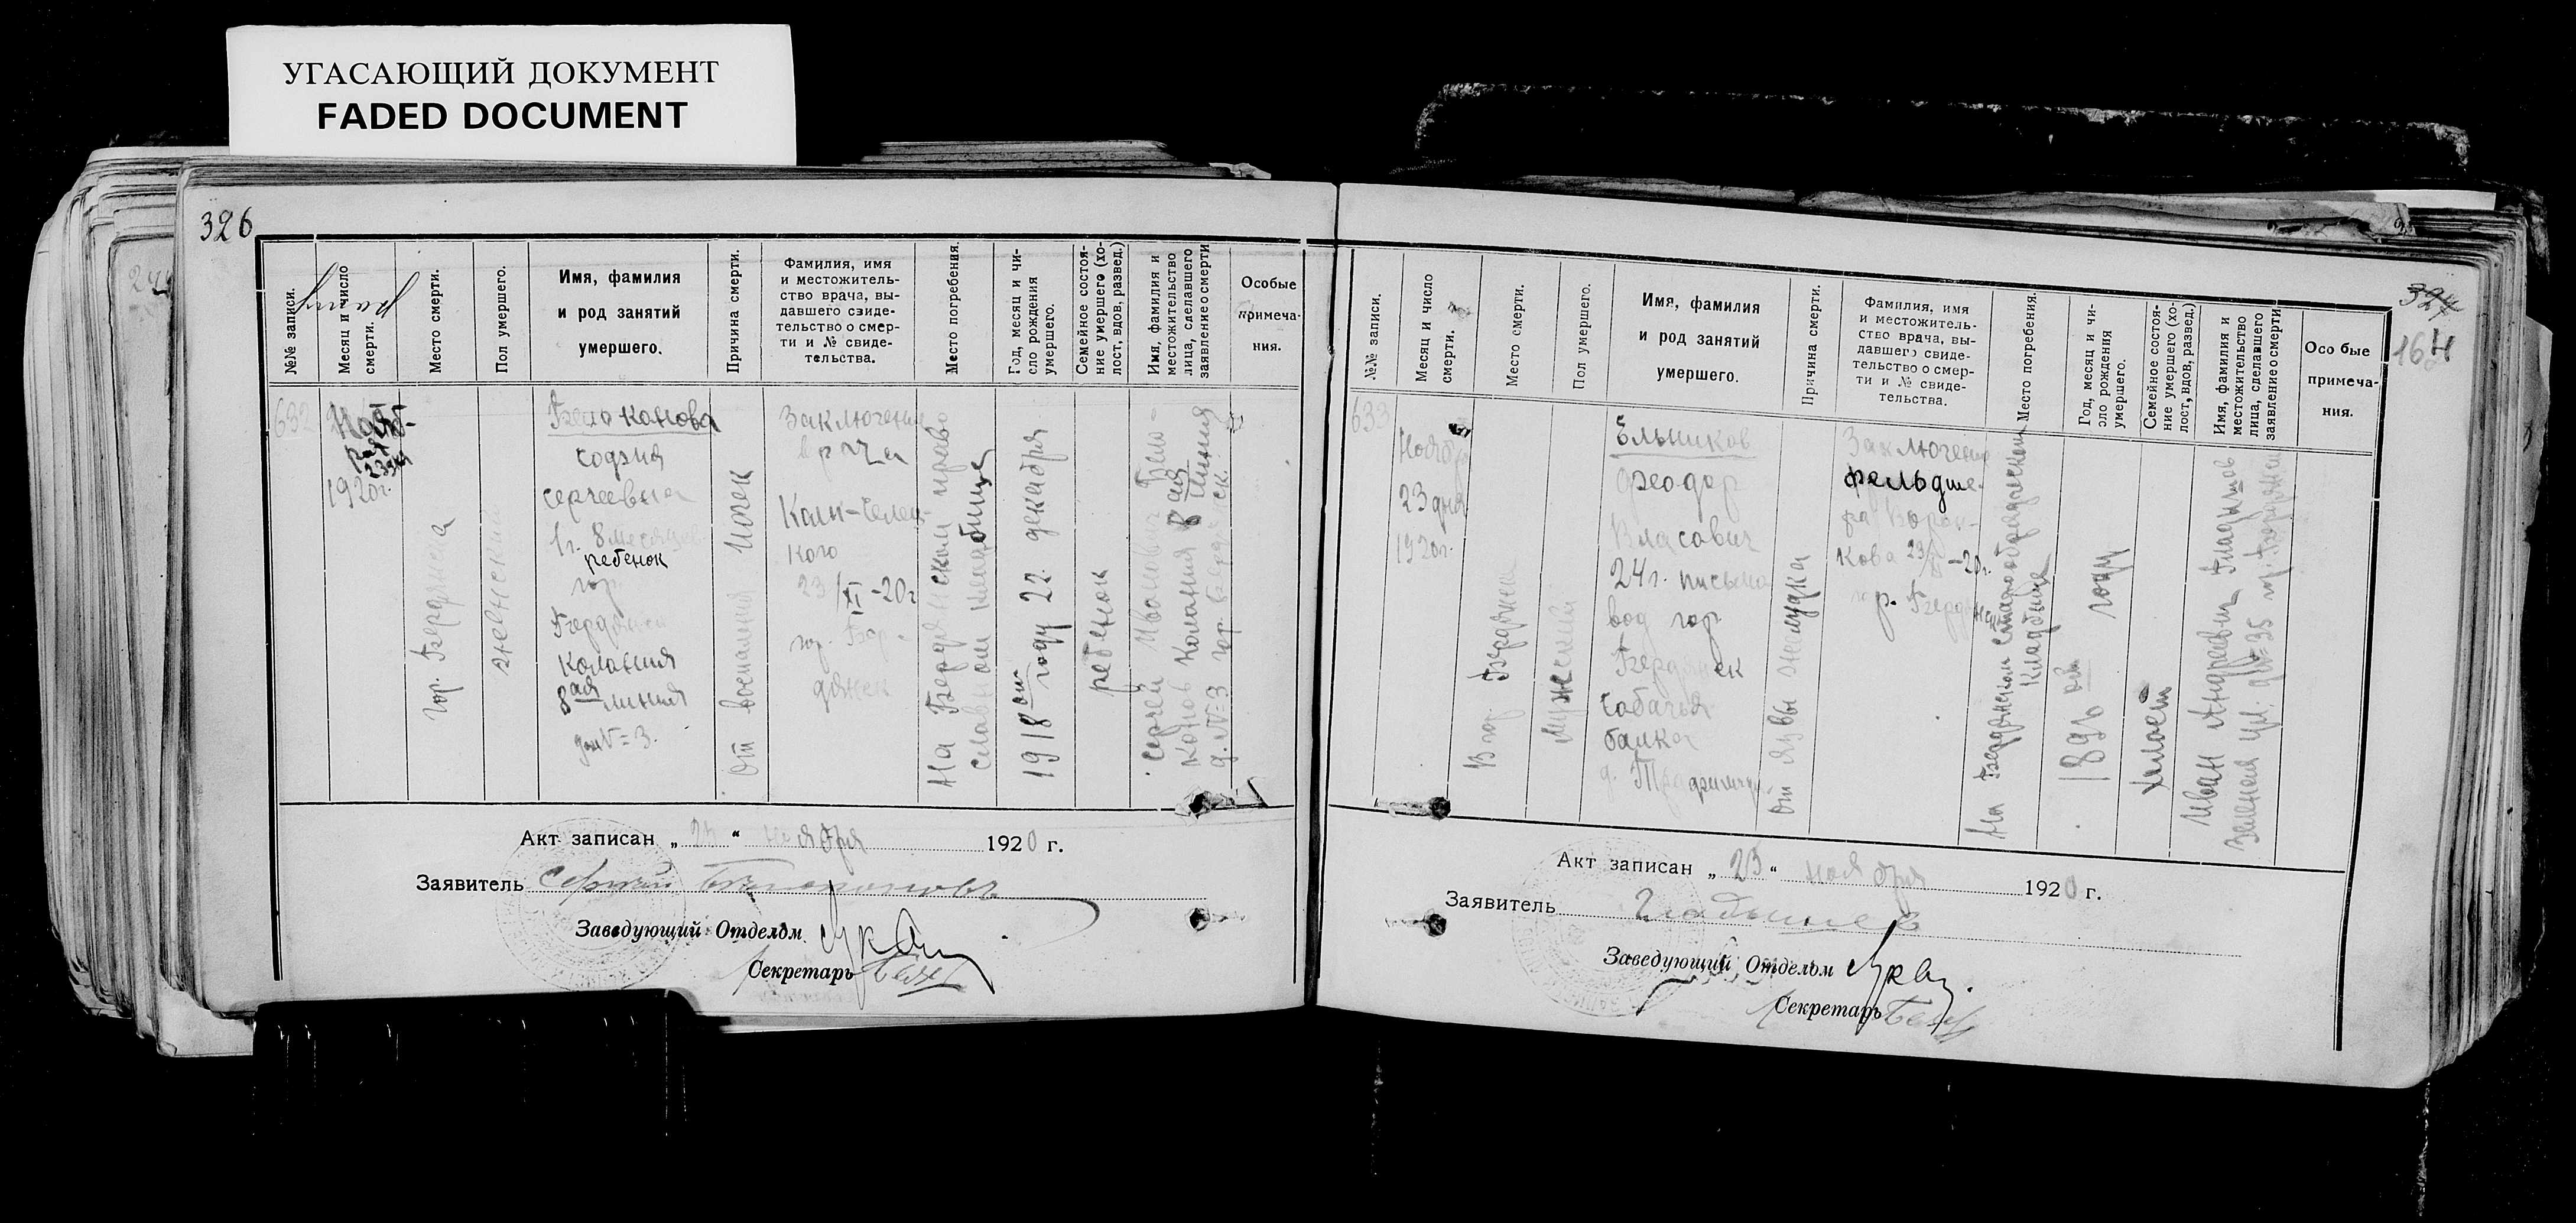 УГАСАЮЩИЙ ДОКУМЕНТ
FADED DOCUMENT
326
№№ записи.
Месяц и число
смерти.
Место смерти.
Пол умершего.
Имя, фамилия
и род занятий
умершего.
Причина смерти.
Фамилия, имя
и местожитель-
ство врача, вы-
давшего свиде-
тельство о смер-
ти и № свиде-
тельства.
Место погребения.
Год, месяц и чи-
сло рождения
умершего.
Семейное состоя-
ние умершего (хо-
лост, вдов, развед.)
Имя, фамилия и
местожительство
лица, сделавшего
заявление о смерти
Особые
примеча-
ния.
632
Нояб-
ря
23дня
1920г.
гор. Бердянска
женский
Белоконова
София
Сергеевна
1г. 8 месяцев
ребенок
гор
Бердянск
Колония
8ая линия
дом №=3.
От воспаления
легок
Заключение
врача
Кали-
кого
23/XI-20г
гор. Бер-
дянск
На Бердянском право
славном кладбище
1918ом году 22 декабря
ребенок
Сергей Иванович Бело-
конов Колония 8ая Линия
д. №=3 гор. Бердянск.
Акт записан „23“ ноября 1920 г.
Заявитель Сергей Белоконовъ
Заведующий Отделом
Секретарь
327
164
№№ записи.
Месяц и число
смерти.
Место смерти.
Пол умершего.
Имя, фамилия
и род занятий
умершего.
Причина смерти.
Фамилия, имя
и местожитель-
ство врача, вы-
давшего свиде-
тельство о смер-
ти и № свиде-
тельства.
Место погребения.
Год, месяц и чи-
сло рождения
умершего.
Семейное состоя-
ние умершего (хо-
лост, вдов, развед.)
Имя, фамилия и
местожительство
лица, сделавшего
заявление о смерти
Особые
примеча-
ния.
633
Ноябр
23 дня
1920г.
В гор. Бердянск
Мужский
Ельников
Феодор
Власович
24г. письмо
вод гор
Бердянск
Собачья
балка
д.
От язвы желудка
Заключение
фельдше-
ра Ворон-
кова 23/XI-20г.
гор. Бердянск
На Бердянском старообрядческом
кладбище
189 ом году
холост
Иван Андреевич Гладышов
Зеленая ул. д№=35 гор. Бердянск
Акт записан „23“ ноября 1920 г.
Заявитель Гладышев
Заведующий Отделом
Секретарь